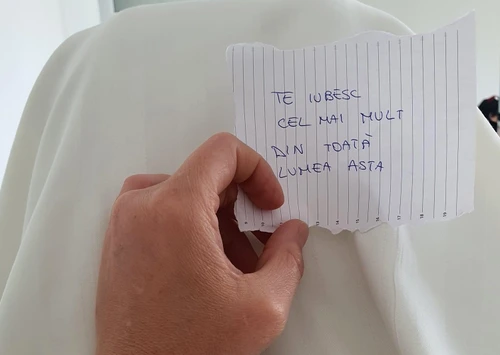 TE IUBESC
CEL MAI MULT
DIN TOATĂ
LUMEA ASTA